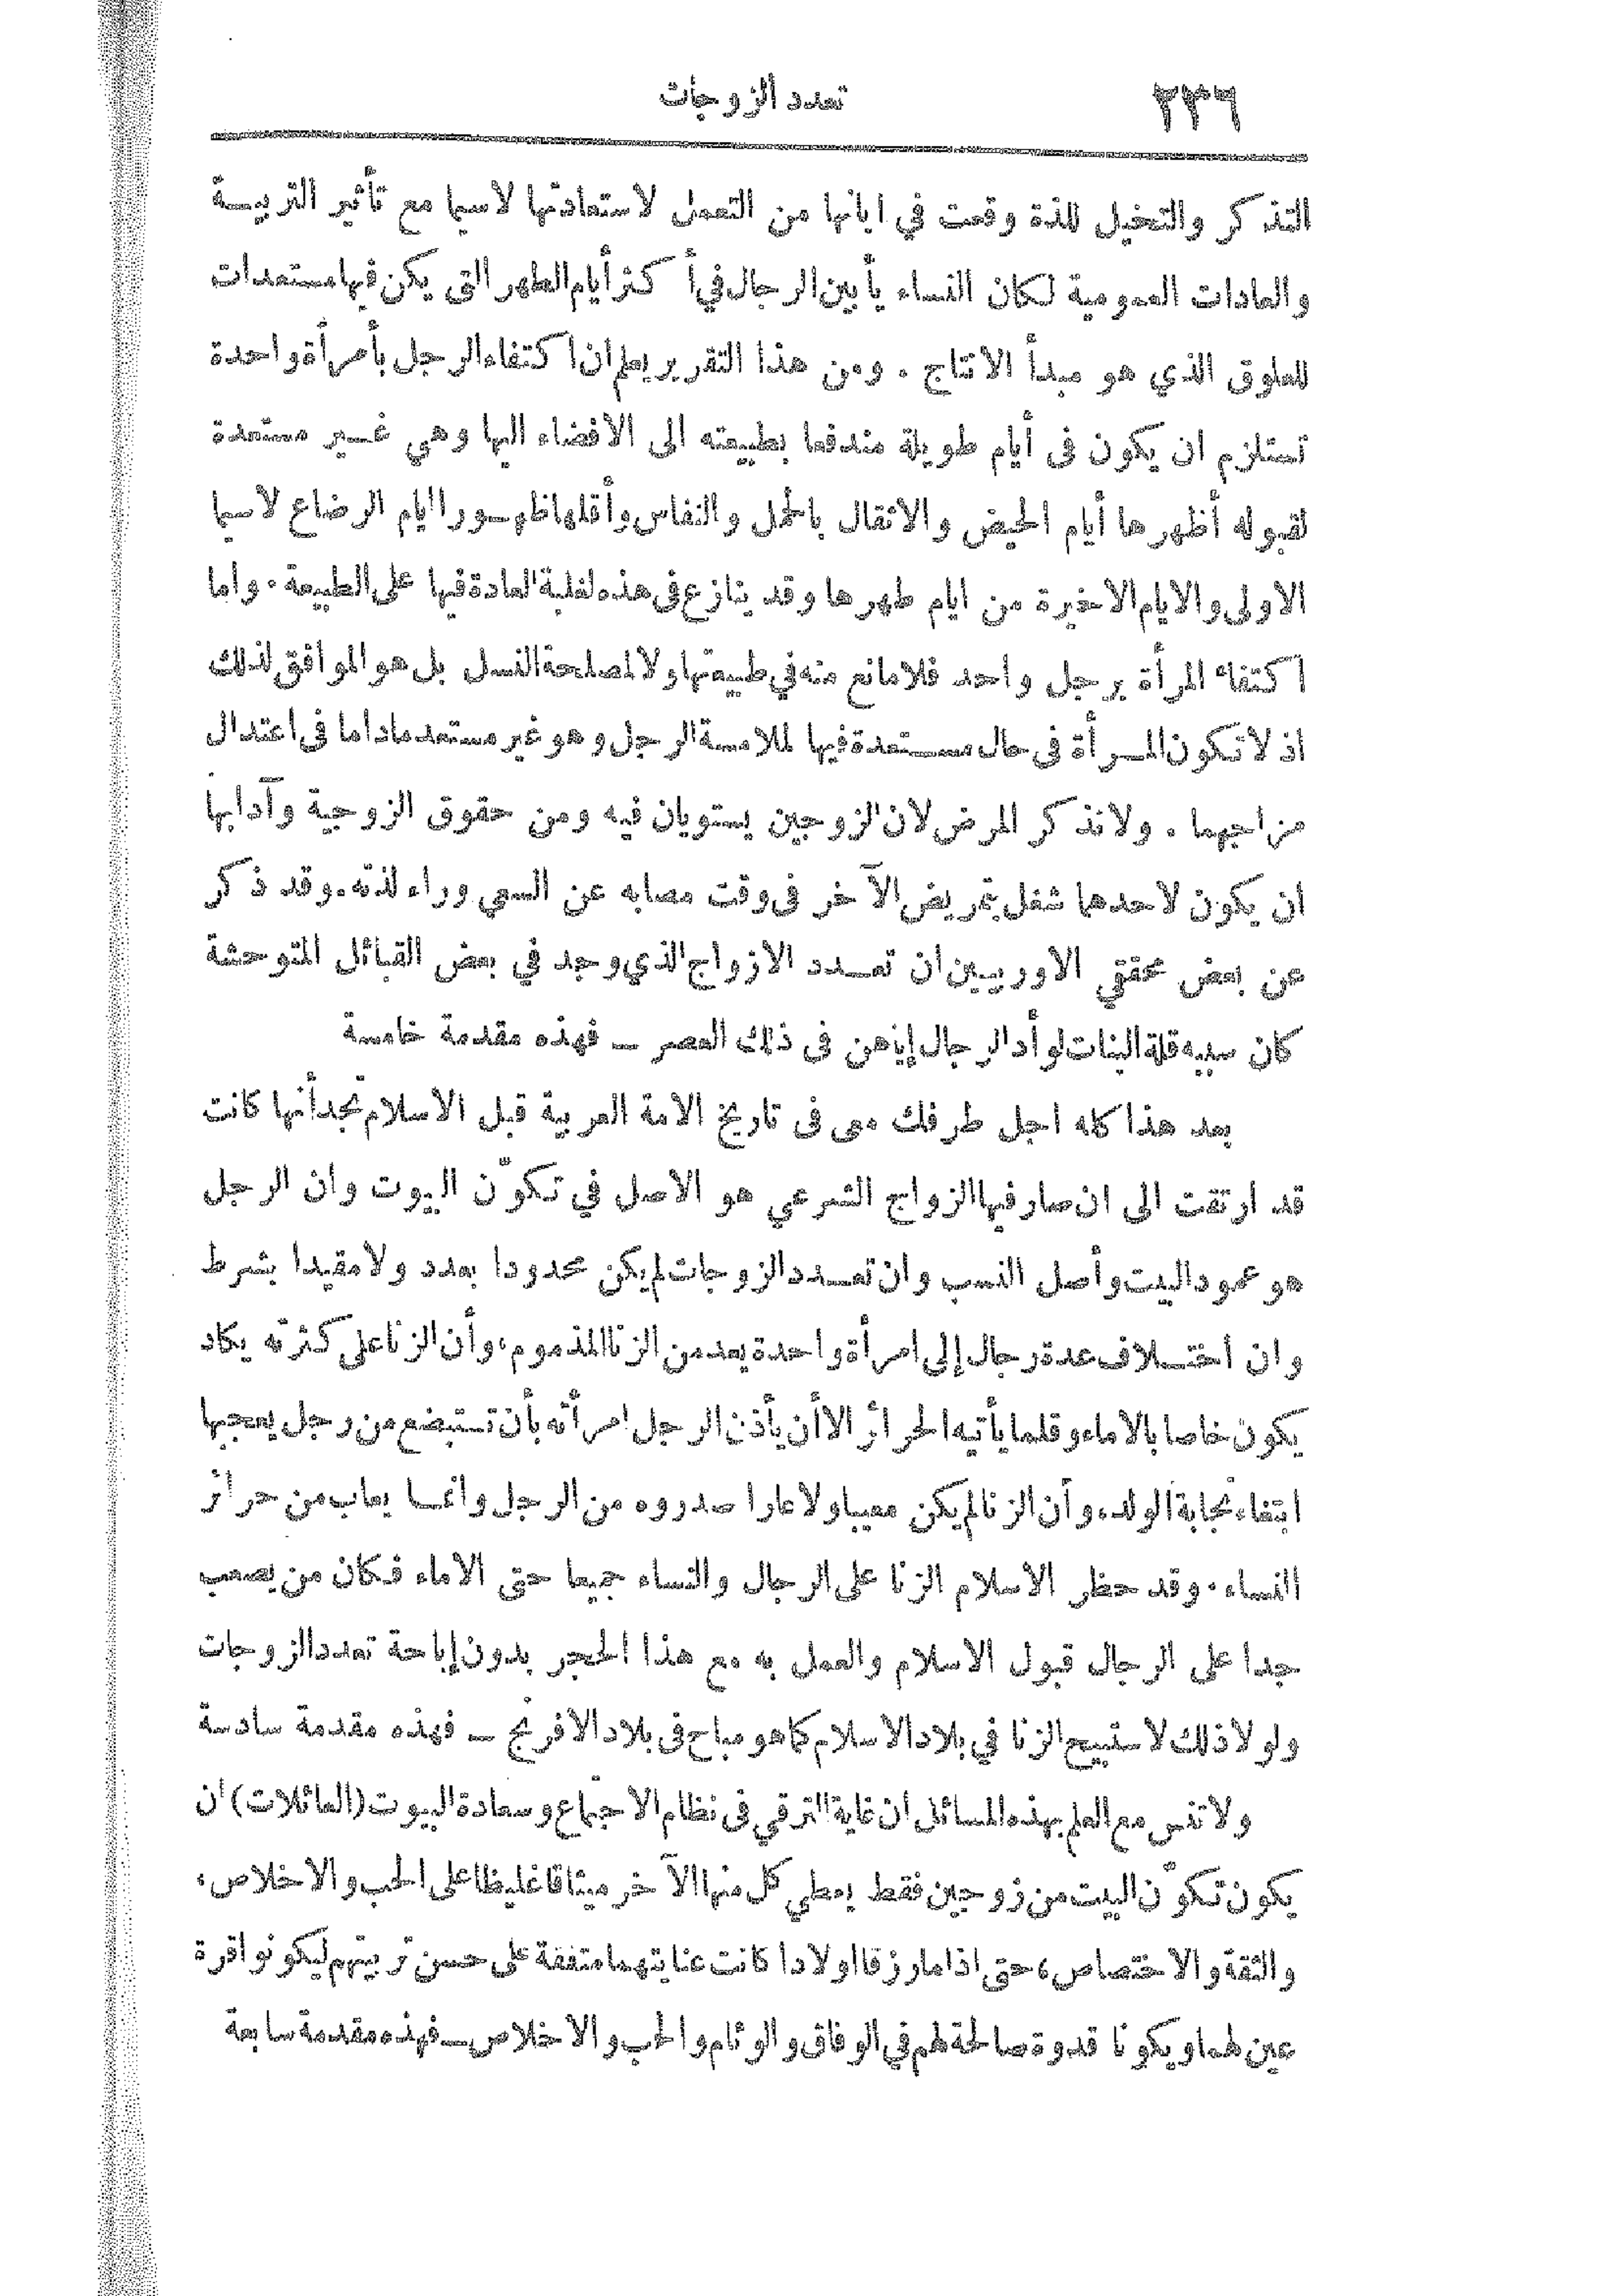 ٢٣٦
تعدد الزوجات
التذكر والتخيل للذة وقعت في ابانها من التعمل لاستعادتها لاسيما مع تأثير التربيـة
والعادات العمومية لكان النساء يأبين الرجال في أكثر أيام الطهر التى يكن فيها مستعدات
للعلوق الذي هو مبدأ الانتاج . ومن هذا التقرير يعلم ان اكتفاء الرجل بأمرأة واحدة
تستلزم ان يكون فى أيام طويلة مندفعا بطبيعته الى الافضاء اليها وهي غـير مستعدة
لقبوله أظهرها أيام الحيض والاثقال بالحمل والنفاس وأقلها ظهـورا ايام الرضاع لاسيما
الاولى والايام الاخيرة من ايام طهرها وقد ينازع فى هذه لغلبة العادة فيها على الطبيعة . واما
اكتفاء المرأة برجل واحد فلا مانع منه في طبيعتها ولا لمصلحة النسل بل هو الموافق لذلك
اذ لا تكون المـرأة فى حال مسـتعدة فيها لملامسة الرجل وهو غير مستعد ماداما فى اعتدال
مزاجهما . ولا نذكر المرض لان الزوجين يستويان فيه ومن حقوق الزوجية وآدابها
ان يكون لاحدهما شغل بتمريض الآخر فى وقت مصابه عن السعي وراء لذته . وقد ذكر
عن بعض محققي الاوربيـين ان تعـدد الازواج الذي وجد في بعض القبائل المتوحشة
كان سببه قلة البنات لوأد الرجال إياهن فى ذلك العصر ــ فهذه مقدمة خامسة
بعد هذا كله اجل طرفك معى فى تاريخ الامة العربية قبل الاسلام تجد أنها كانت
قد ارتقت الى ان صار فيها الزواج الشرعي هو الاصل في تكوّن البيوت وان الرجل
هو عمود البيت وأصل النسب وان تعـدد الزوجات لم يكن محدودا بعدد ولا مقيدا بشرط
وان اختـلاف عدة رجال إلى امرأة واحدة يعد من الزنا المذموم، وأن الزنا على كثرته يكاد
يكون خاصا بالاماء وقلما يأتيه الحرائر الا أن يأذن الرجل امرأته بأن تستبضع من رجل يعجبها
ابتغاء نجابة الولد، وأن الزنا لم يكن معيبا ولا عارا صدروه من الرجل وانمـا يعاب من حرائر
النساء . وقد حظر الاسلام الزنا على الرجال والنساء جميعا حتى الاماء فكان من يصعب
جدا على الرجال قبول الاسلام والعمل به مع هذا الحجر بدون إباحة تعدد الزوجات
ولولا ذلك لاستبيح الزنا في بلاد الاسلام كما هو مباح فى بلاد الافرنج ــ فهذه مقدمة سادسة
ولا تنس مع العلم بهذه المسائل ان غاية الترقي فى نظام الاجتماع وسعادة البيوت (العائلات) ان
يكون تكوّن البيت من زوجين فقط يعطي كل منها الآخر ميثاقا غليظا على الحب والاخلاص،
والثقة والاختصاص، حتى اذا ما رزقا اولادا كانت عنايتهما متفقة على حسن تربيتهم ليكونوا قرة
عين لهما ويكونا قدوة صالحة لهم في الوفاق والوئام والحب والاخلاص ــ فهذه مقدمة سابعة